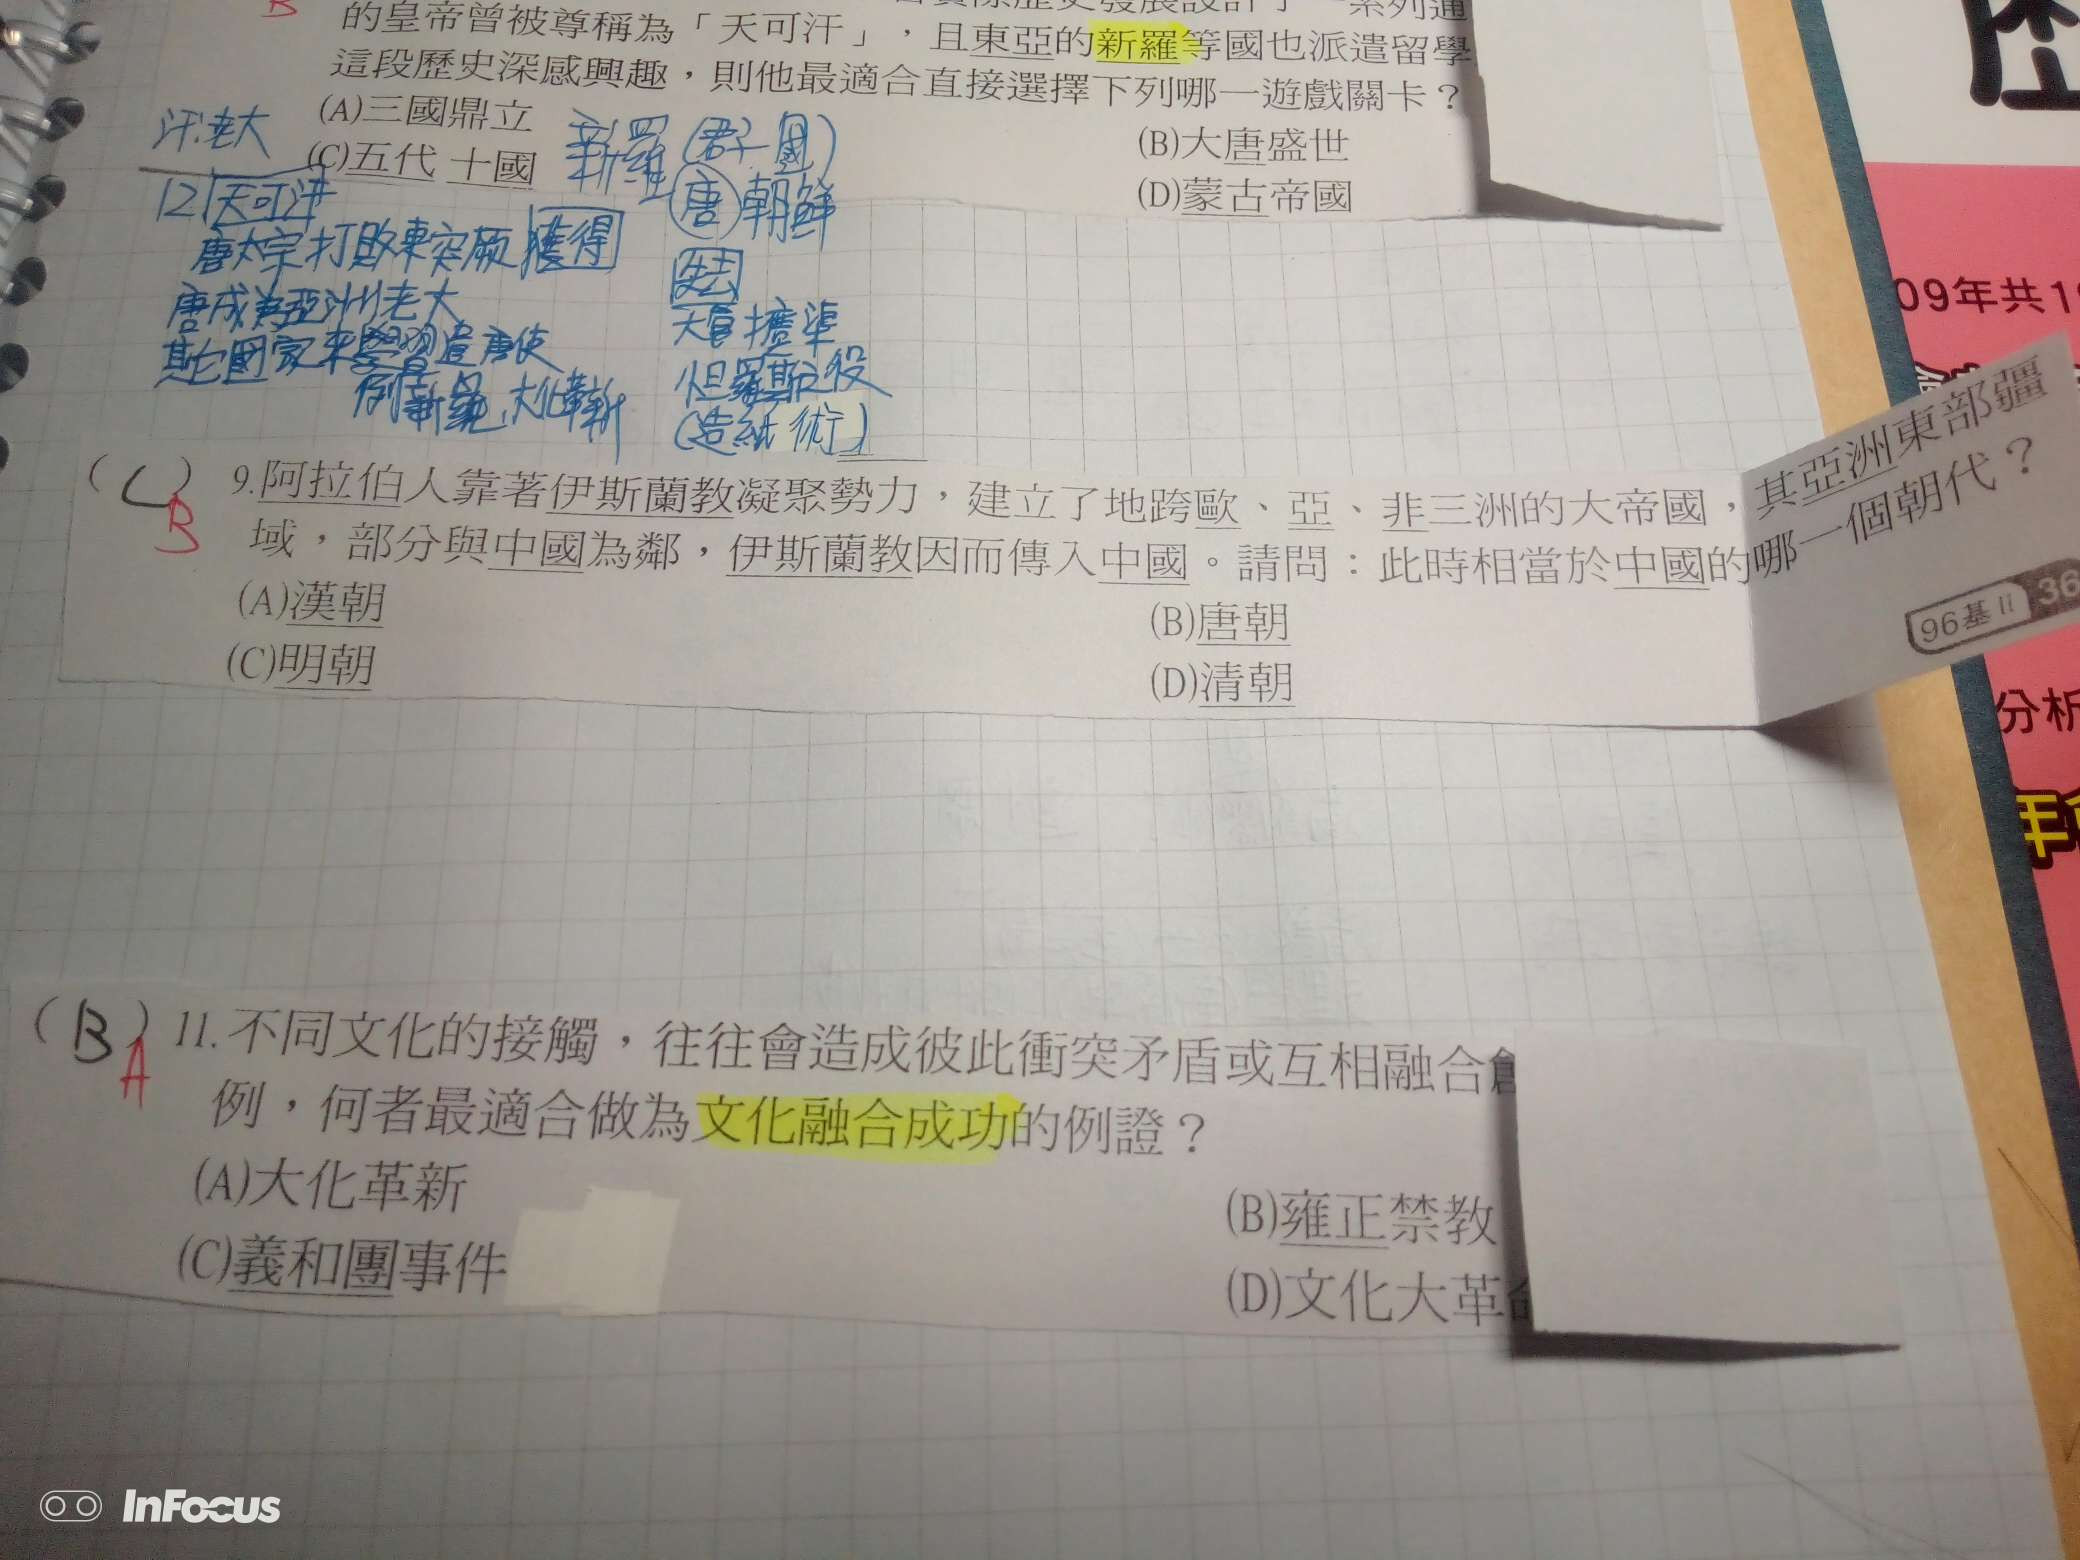 的皇帝曾被尊稱為「天可汗」，且東亞的新羅等國也派遣留學
這段歷史深感興趣，則他最適合直接選擇下列哪一遊戲關卡？
(A)三國鼎立
(B)大唐盛世
(C)五代十國
(D)蒙古帝國
汗:老大
新羅(君子國)
唐 朝鮮
12 天可汗
唐太宗打敗東突厥獲得
唐成為亞洲老大
其它國家來學習遣唐使
例新羅、大化革新
怛羅斯之役
(造紙術)
(C) B
9.阿拉伯人靠著伊斯蘭教凝聚勢力，建立了地跨歐、亞、非三洲的大帝國，其亞洲東部疆
域，部分與中國為鄰，伊斯蘭教因而傳入中國。請問：此時相當於中國的哪一個朝代？
(A)漢朝
(B)唐朝
(C)明朝
(D)清朝
96基II 36
(B) A
11.不同文化的接觸，往往會造成彼此衝突矛盾或互相融合
例，何者最適合做為文化融合成功的例證？
(A)大化革新
(B)雍正禁教
(C)義和團事件
(D)文化大革
09年共1
分析
InFocus